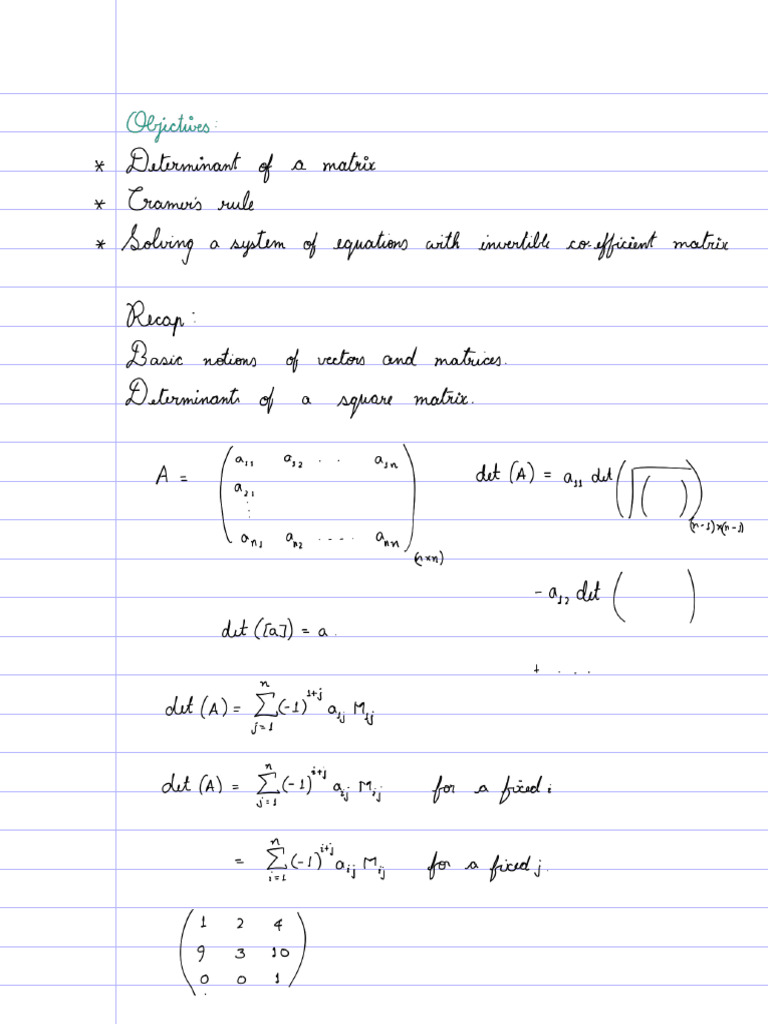 Objectives:
* Determinant of a matrix
* Cramer's rule
* Solving a system of equations with invertible co-efficient matrix
Recap:
Basic notions of vectors and matrices.
Determinants of a square matrix.
A = ( a₁₁ a₁₂ . . a₁ₙ
a₂₁
⋮
aₙ₁ aₙ₂ . . . . aₙₙ )₍ₙₓₙ₎
det (A) = a₁₁ det ( ( ) )(n-1)×(n-1)
- a₁₂ det ( )
+ . . .
det ([a]) = a.
det (A) = ∑_{j=1}^{n} (-1)^{1+j} a_{1j} M_{1j}
det (A) = ∑_{j=1}^{n} (-1)^{i+j} a_{ij} M_{ij} for a fixed i
= ∑_{i=1}^{n} (-1)^{i+j} a_{ij} M_{ij} for a fixed j.
( 1 2 4
9 3 10
0 0 1 )